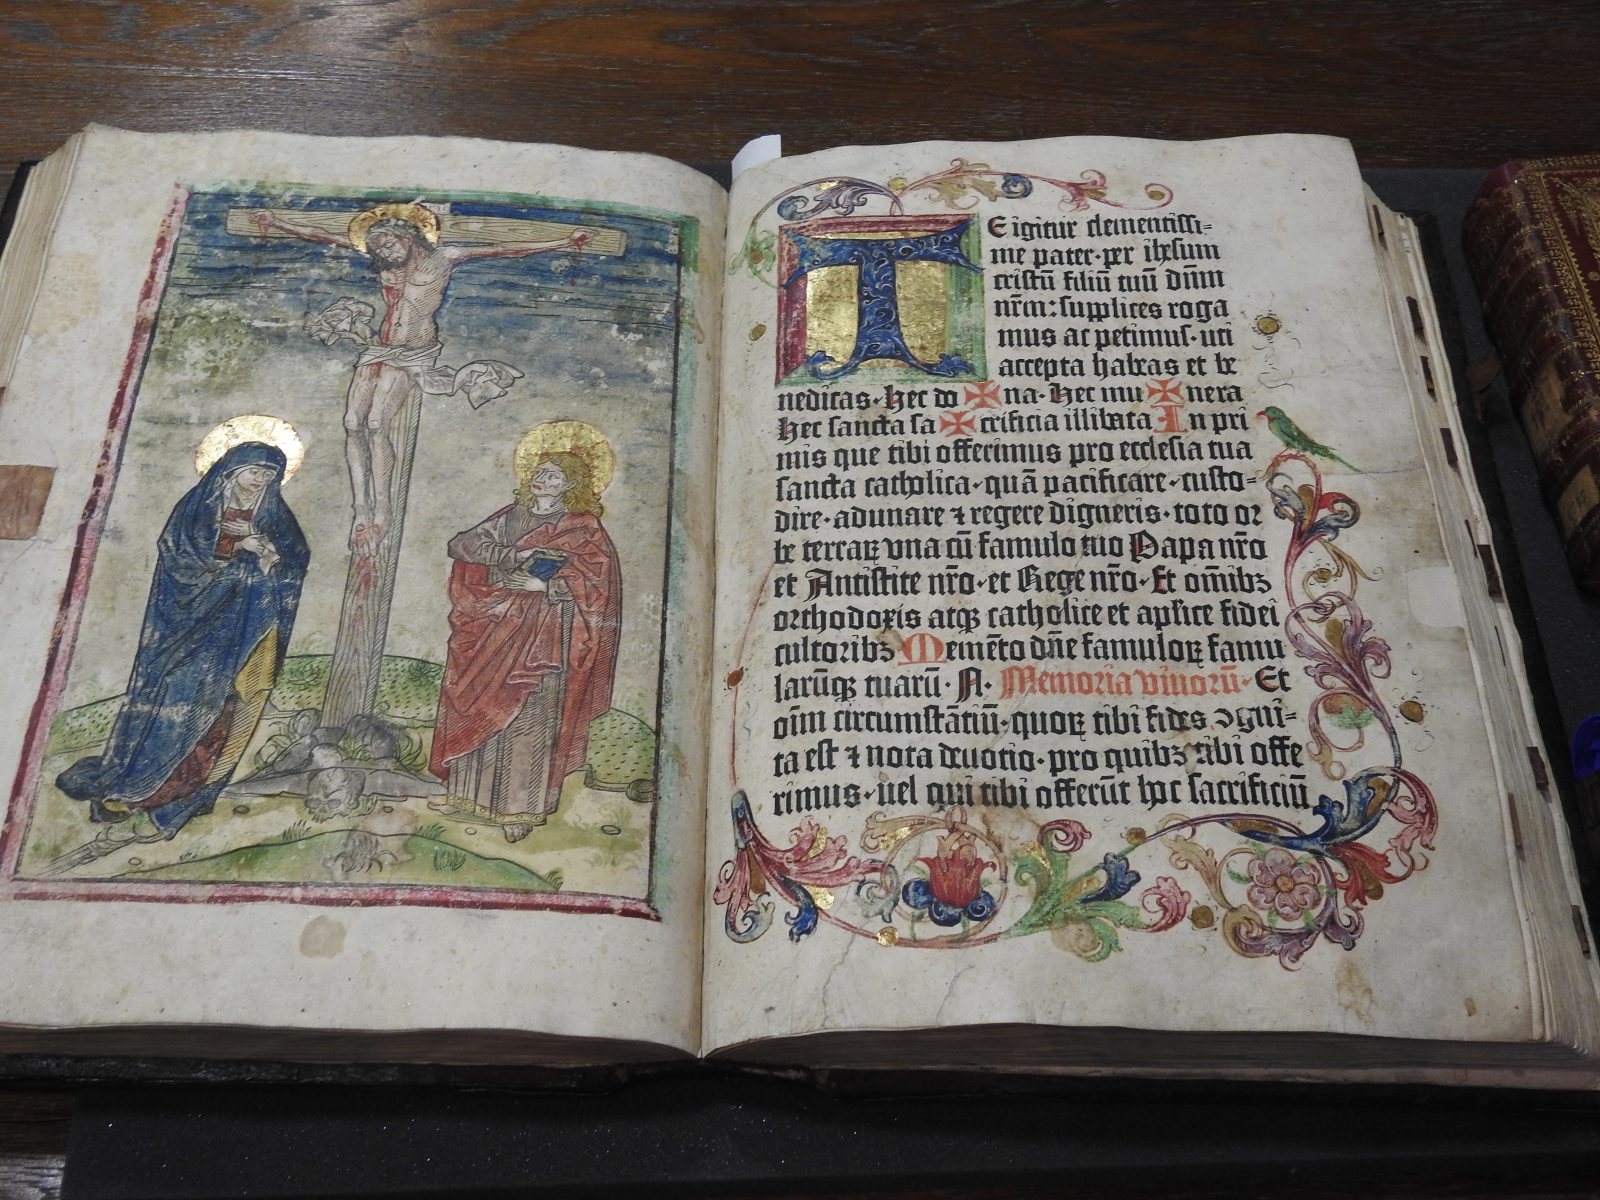 TE igitur clementissi-
me pater·per ihesum
cristū filiū tuū dn̄m
nr̄m: supplices roga
mus ac petimus·uti
accepta habeas et be
nedicas·hec do ✠ na·Hec mu ✠ nera
Hec sancta sa ✠ crificia illibata In pri
mis que tibi offerimus pro ecclesia tua
sancta catholica·quā pacificare·custo-
dire·adunare ⁊ regere digneris·toto or
be terraꝝ vna cū famulo tuo Papa nr̄o
et Antistite nr̄o·et Rege nr̄o·Et om̄ibꝫ
orthodoxis atqꝫ catholice et apl̄ice fidei
cultoribꝫ Memēto dn̄e famuloꝝ famu
larūqꝫ tuarū·N·Memoria viuorū·Et
oīm circumstātiū·quoꝝ tibi fides ꝯgni-
ta est ⁊ nota deuotio·pro quibꝫ tibi offe
rimus·uel qui tibi offerūt hoc sacrificiū